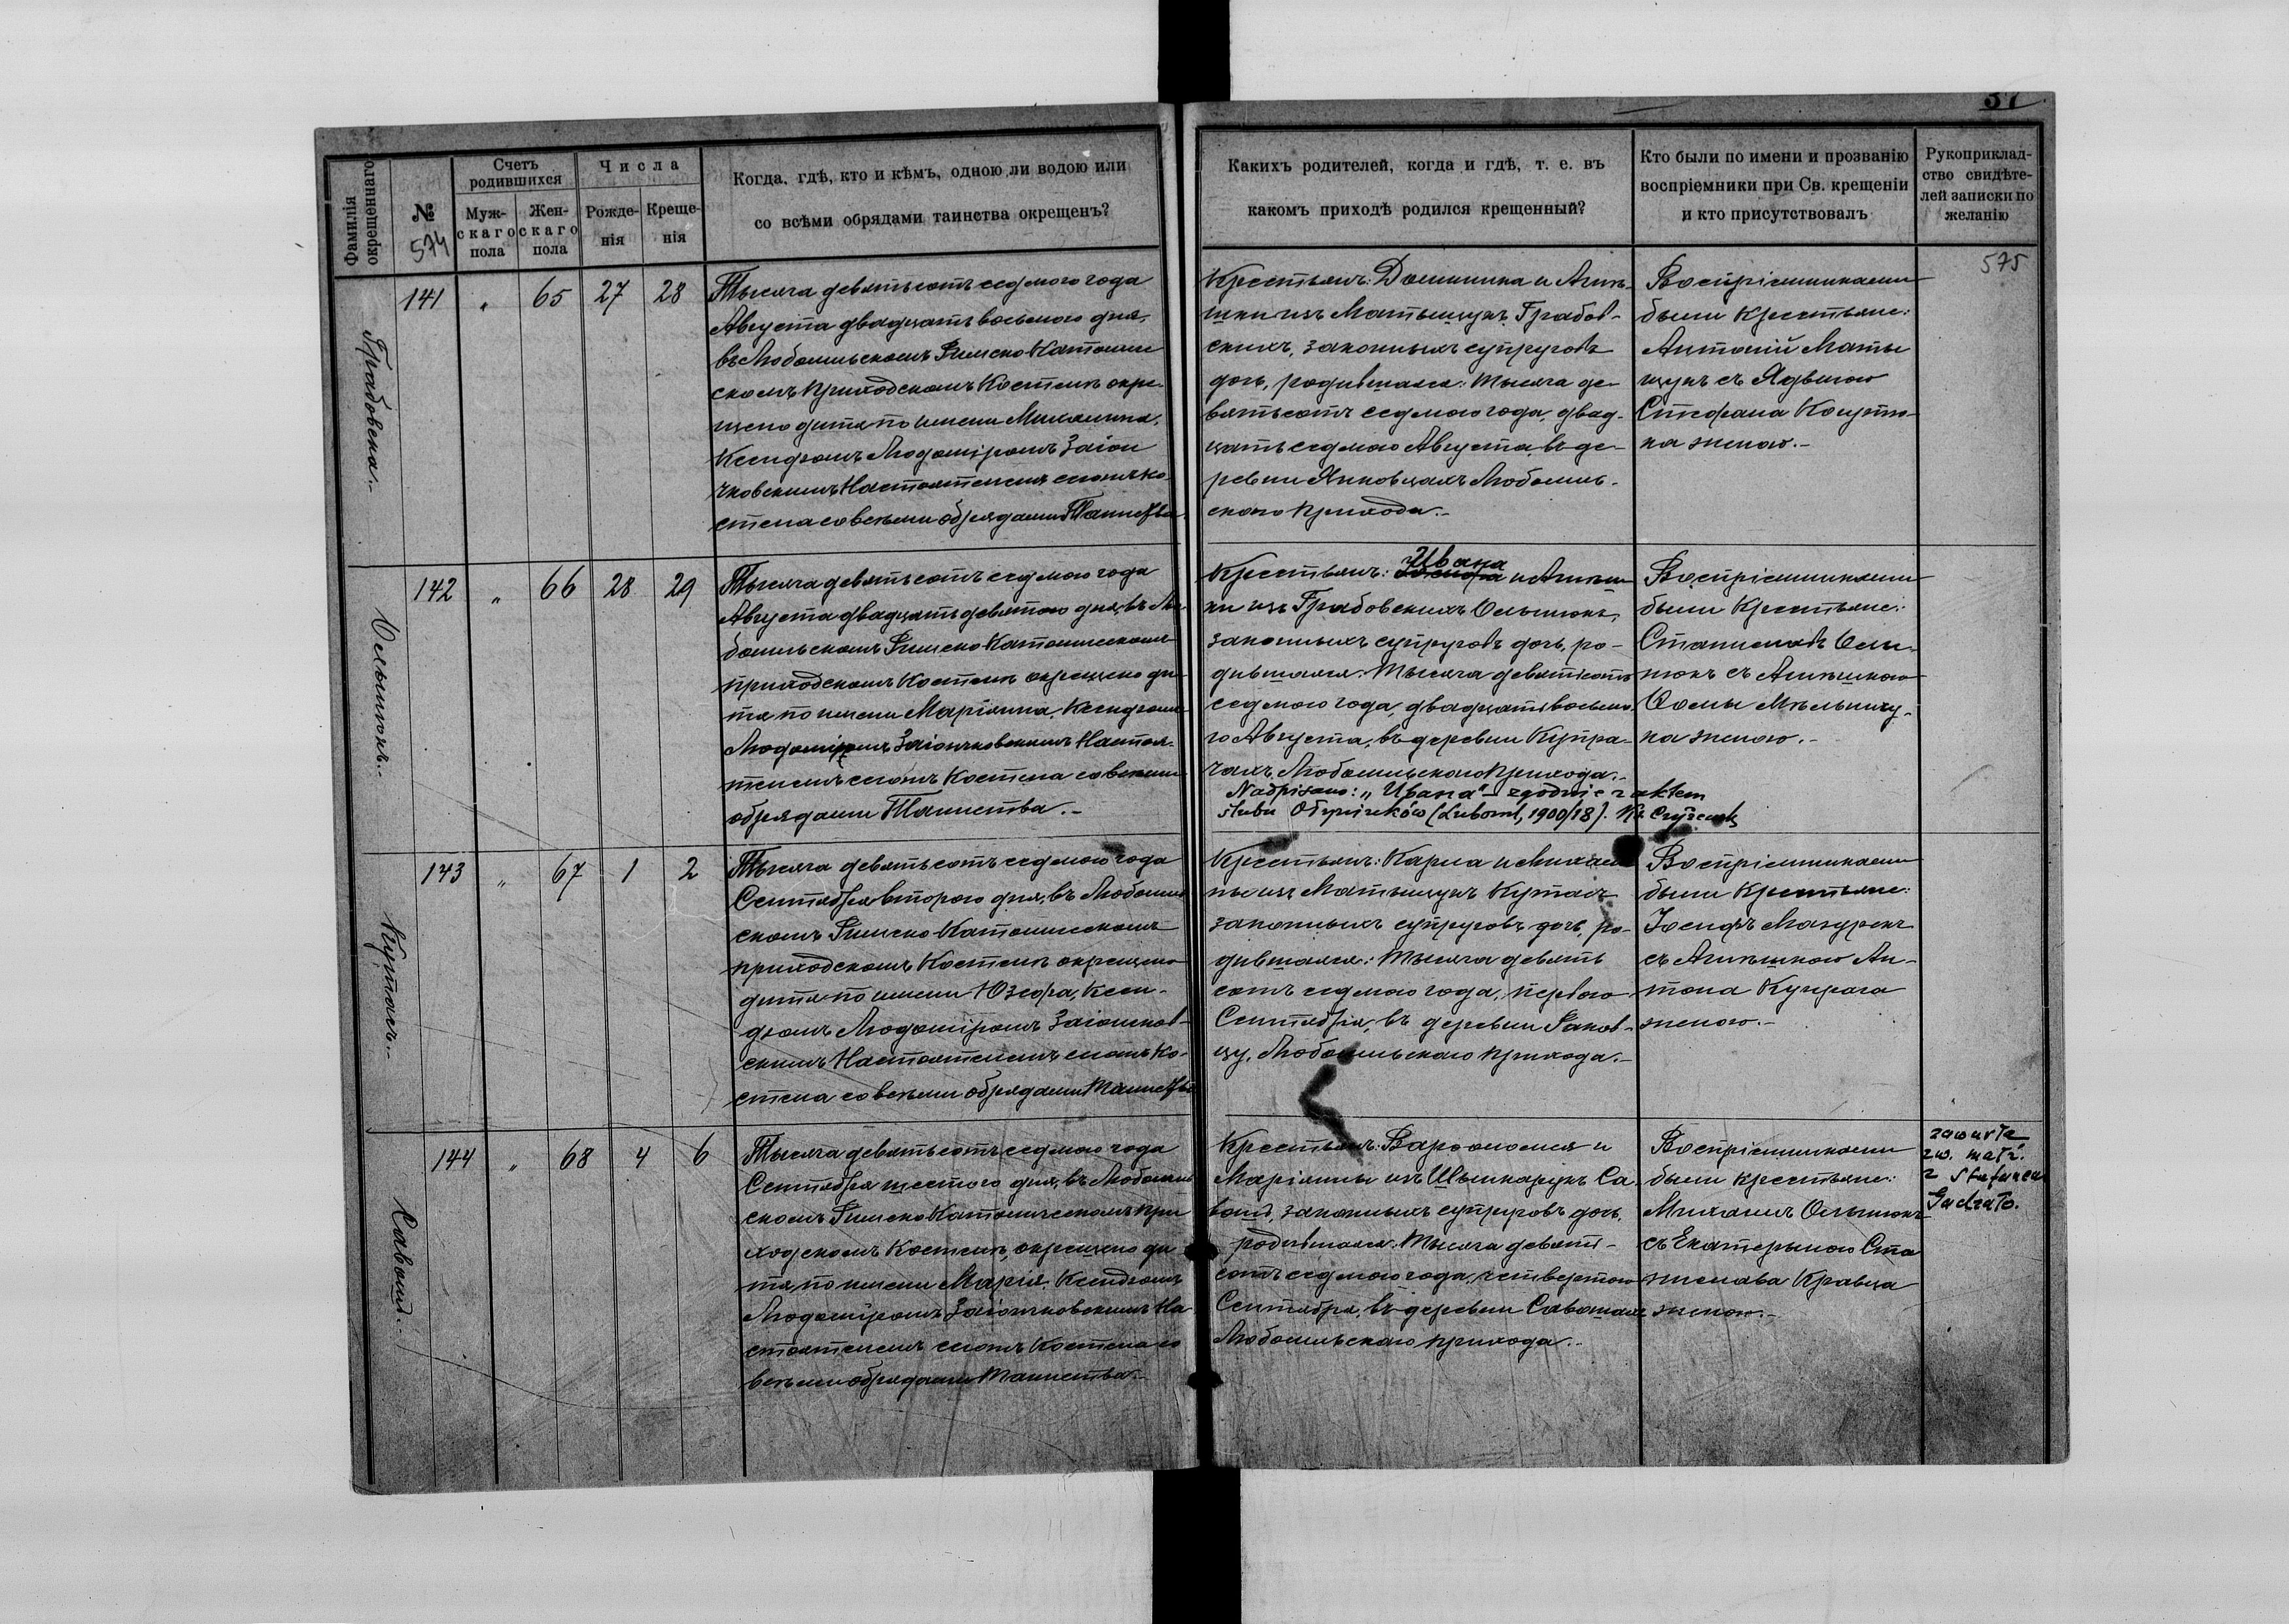 37
Фамилія окрещеннаго
№
574
Счетъ родившихся
Мужскаго пола
Женскаго пола
Числа
Рожденія
Крещенія
Когда, гдѣ, кто и кѣмъ, одною ли водою или
со всѣми обрядами таинства окрещенъ?
Какихъ родителей, когда и гдѣ, т. е. въ
какомъ приходѣ родился крещенный?
Кто были по имени и прозванію
воспріемники при Св. крещеніи
и кто присутствовалъ
Рукоприклад-
ство свидѣте-
лей записки по
желанію
575
Грабовска.-
141 " 65 27 28
Тысяча девятьсотъ седмого года
Августа двадцать восьмого дня,
въ Любомльскомъ Римско-Католиче
скомъ приходскомъ Костелѣ окре-
щено дитя по имени Михалина,
Ксендзомъ Людомiромъ Заіон
чковскимъ Настоятелемъ сего же ко-
стела со всѣми обрядами Таинства.
Крестьянъ: Доминика и Агнѣ-
шки изъ Матыщукъ Грабов-
скихъ, законныхъ супруговъ
дочь, родившаяся: тысяча де-
вятьсотъ седмого года, двад-
цать седмого Августа, въ де-
ревни Янковцахъ Любомль-
ского прихода.-
Воспріемниками
были крестьяне:
Антоній Маты
щукъ съ Ядвигою
Стефана
на женою.-
Ольшнюкъ.-
142 " 66 28 29
Тысяча девятьсотъ седмого года
Августа двадцать девятого дня, въ Лю-
бомльскомъ Римско-Католическомъ
приходскомъ Костелѣ окрещено ди-
тя по имени Маріянна, Ксендзомъ
Людомiромъ Заіончковскимъ Настоя-
телемъ сего же Костела со всѣми
обрядами Таинства.-
Ивана
Крестьянъ: Іосифа и Агнѣш
ки изъ Грабовскихъ
законныхъ супруговъ дочь, ро-
дившаяся: тысяча девятьсотъ
седмого года, двадцать восьмо-
го Августа, въ деревни Купра-
чахъ, Любомльского прихода.-
Nadpisano: „Ивана" - zgodnie z aktem
ślubu (Luboml, 1900/18). Ks.
Воспріемниками
были крестьяне:
Станиславъ
съ Агнѣшкою
Ѳомы Мѣльничу-
ка женою.-
Купрачъ.-
143 " 67 1 2
Тысяча девятьсотъ седмого года
Сентября второго дня, въ Любомль
скомъ Римско-Католическомъ
приходскомъ Костелѣ окрещено
дитя по имени Юзефа, Ксен-
дзомъ Людомiромъ Заіончков-
скимъ Настоятелемъ сего же Ко-
стела со всѣми обрядами Таинства
Крестьянъ: Карла и Михали
ны изъ Матыщукъ
законныхъ супруговъ дочь, ро-
дившаяся: тысяча девять
сотъ седмого года, первого
Сентября, въ деревни
Любомльского прихода.-
Воспріемниками
были крестьяне:
Іосифъ Мазурекъ
съ Агнѣшкою Ан-
тона Купрача
женою.-
Савошъ.-
144 " 68 4 6
Тысяча девятьсотъ седмого года
Сентября шестого дня, въ Любомль
скомъ Римско-Католическомъ при
ходскомъ Костелѣ, окрещено ди
тя по имени Марія, Ксендзомъ
Людомiромъ Заіончковскимъ На
стоятелемъ сего же Костела со
всѣми обрядами Таинства.-
Крестьянъ: Варѳоломея и
Маріянны изъ Шинкарукъ Са
вошъ, законныхъ супруговъ дочь,
родившаяся: тысяча девять-
сотъ седмого года, четвертого
Сентября, въ деревни Савошахъ
Любомльского прихода.-
Воспріемниками
были крестьяне:
Михаилъ
съ Екатериною Ста
нислава Кравца
женою.-
zawarła
zw. małż.
z